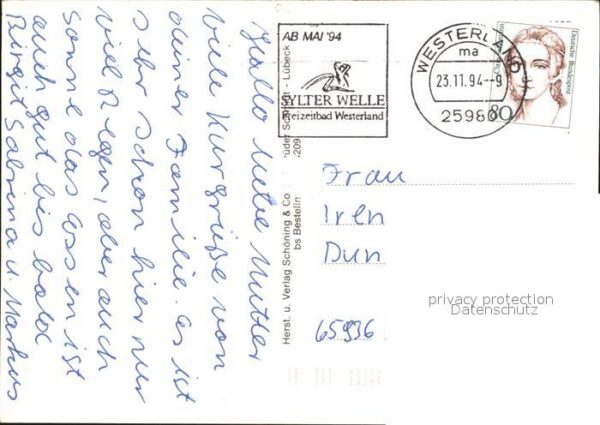 Hallo liebe Mutter
viele Kurgrüße von
deiner Familie. es ist
sehr schön hier nur
viel Regen, aber auch
Sonne das essen ist
auch gut bis bald
Birgit Sabrina u. Markus
AB MAI '94
SYLTER WELLE
Freizeitbad Westerland
WESTERLAND
ma
23.11.94-9
25980
Deutsche Bundespost
80
Herst. u. Verlag Schöning & Co
Lübeck
Frau
Iren
Dun
65936
privacy protection
Datenschutz